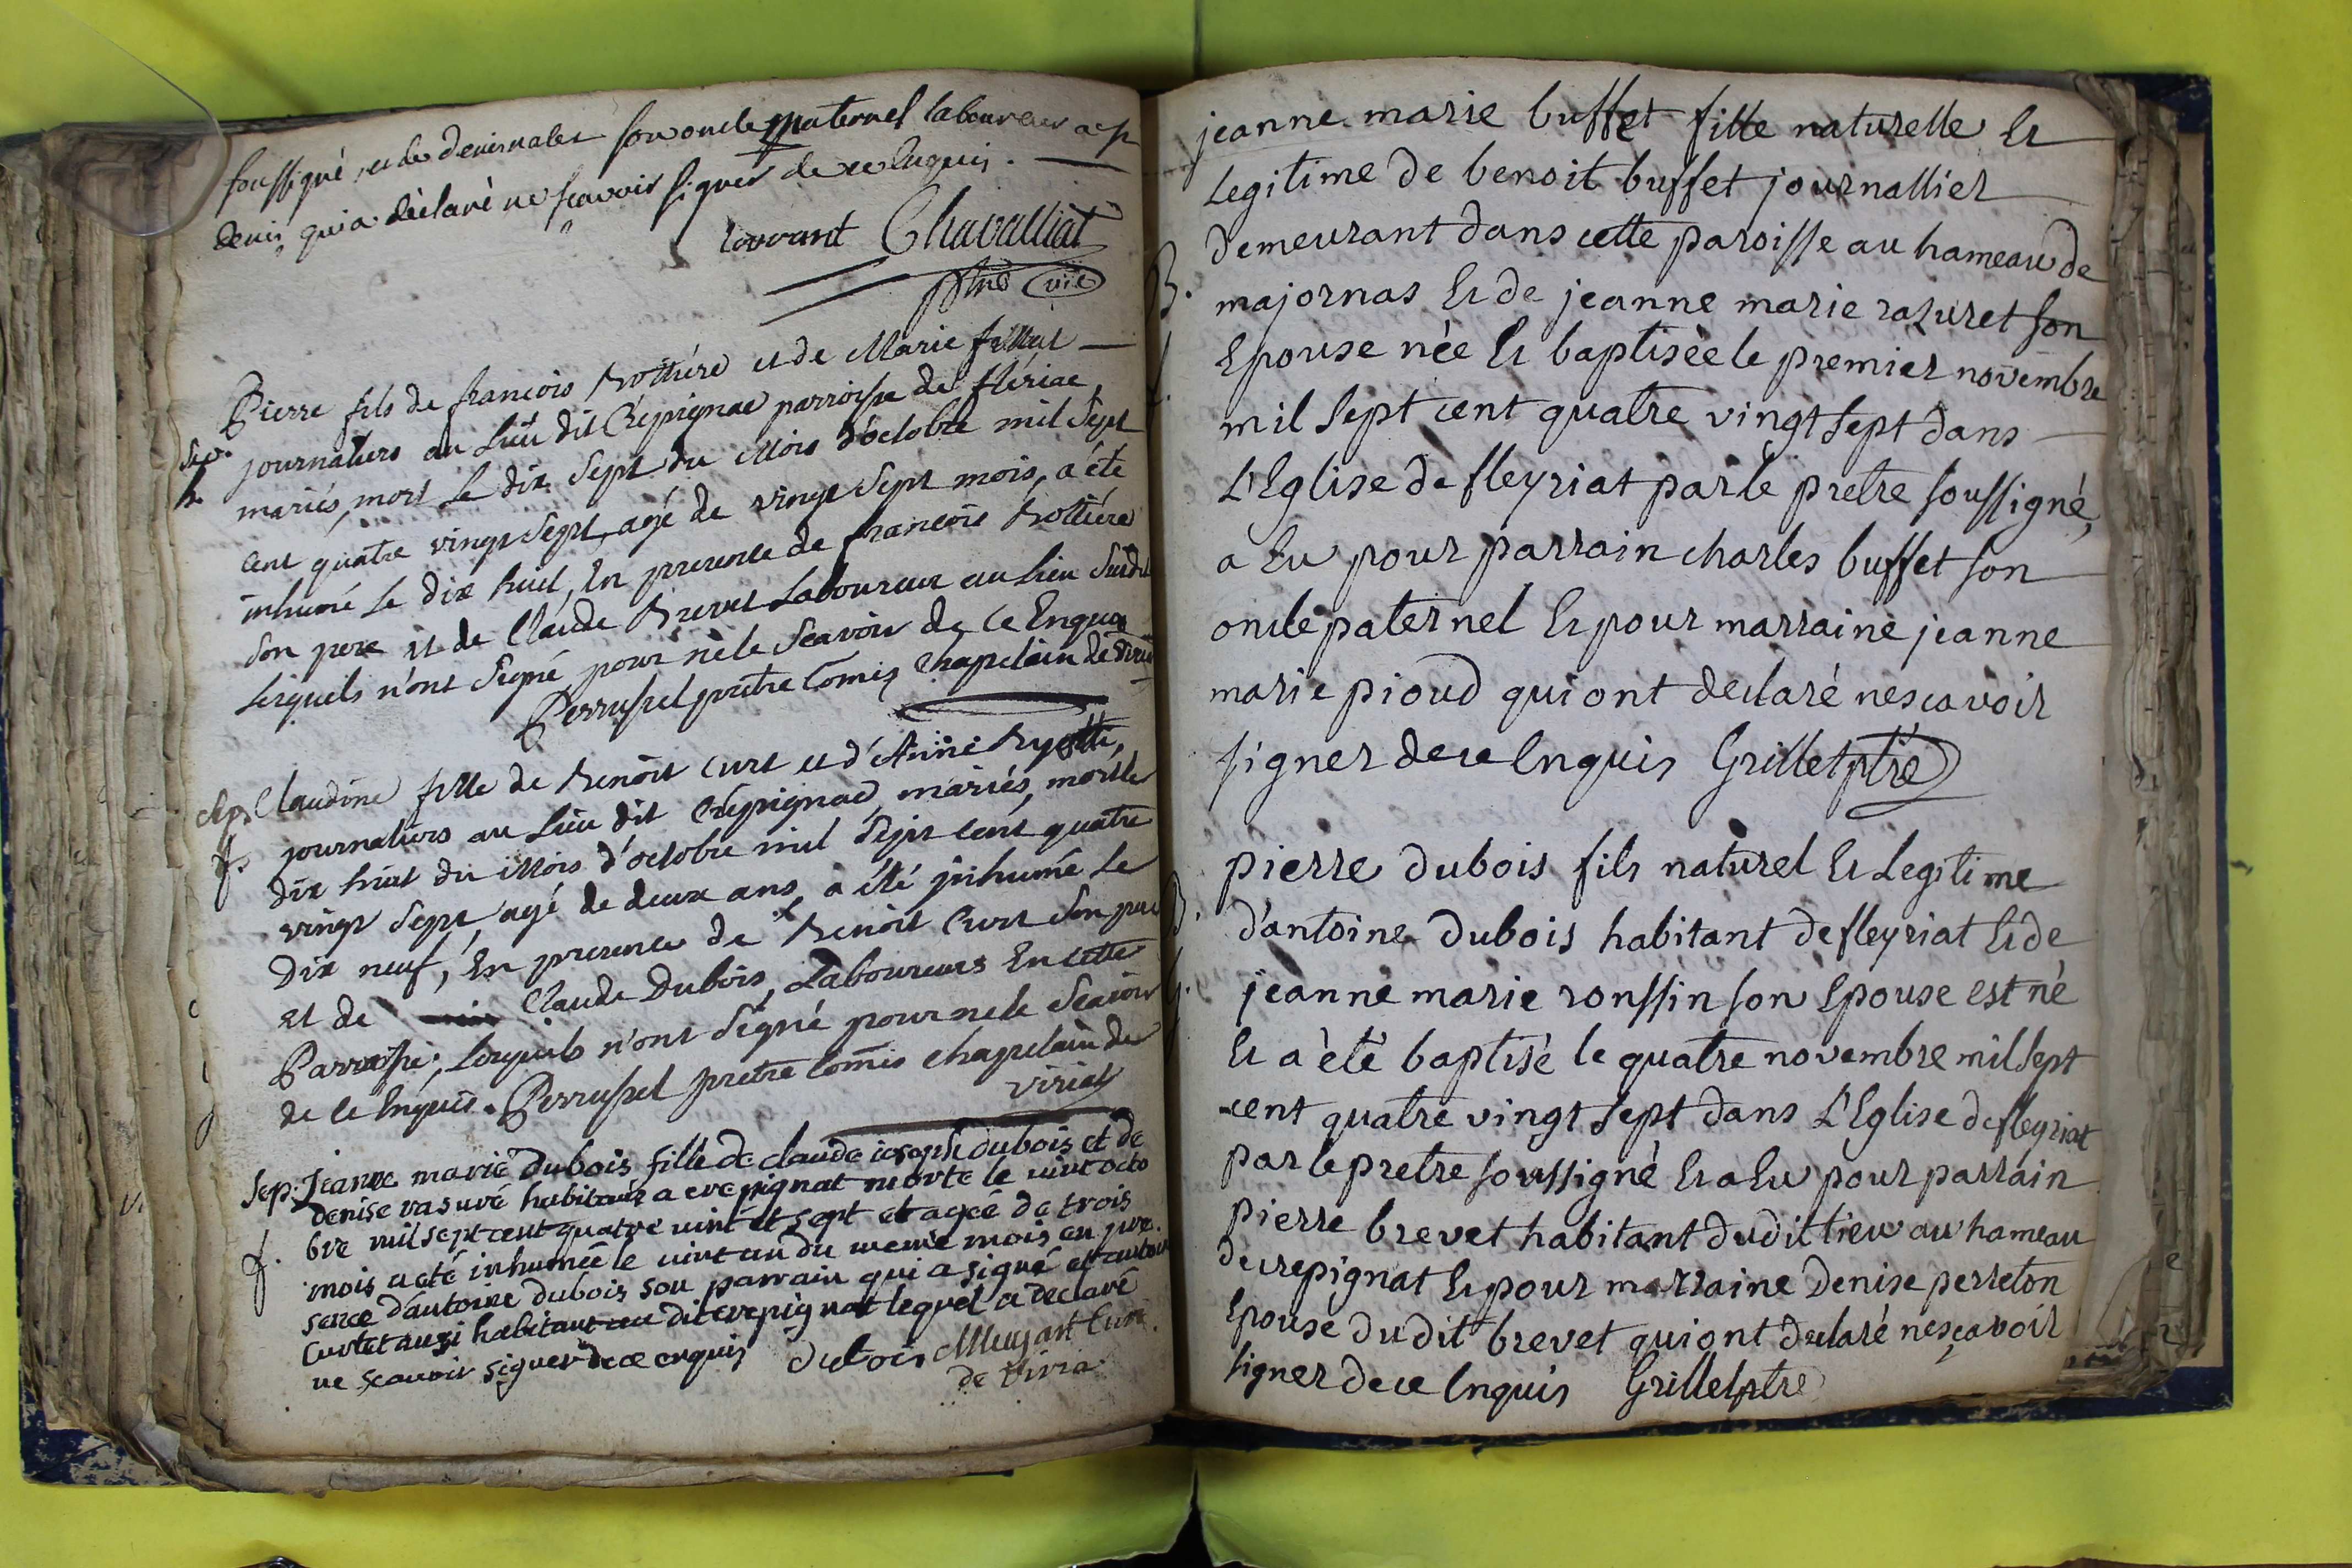 soussigné, et de denis maler son oncle maternel laboureur a st
denis, qui a déclaré ne sçavoir signer de ce enquis.
rouvant Chavalliat
ptre curé
Pierre fils de françois Bottiére et de Marie
Sep. journaliers au Lieu dit Crépignac parroisse de fleriac,
mariés, mort Le dix Sept du Mois d'octobre mil Sept
cent quatre vingt Sept, agé de vingt Sept mois, a été
inhumé Le dix huit, En presence de françois Bottiére
Son pere et de Claude Brevet Laboureur au Lieu Susdit
Lesquels n'ont Signé pour ne le Scavoir de ce Enquis
Perrussel prêtre Comis Chapelain de Viriat
Sep. Claudine fille de Benoit Curt et d'Anne
f. journaliers au Lieu dit Crépignac, mariés, morte le
dix huit du Mois d'octobre mil Sept cent quatre
vingt Sept, agé de deux ans, a été inhumé Le
Dix neuf, En presence de Benoit Curt Son pere
et de Claude Dubois, Laboureurs En cette
Parroisse, Lesquels n'ont Signé pour ne le Scavoir
de ce Enquis. Perrussel prêtre Comis chapelain de
viriat
Sep. Jeanne marie Dubois fille de claude joseph dubois et de
denise rasuré habitants a crepignat morte le vint octo
f. bre mil sept cent quatre vint et sept et agée de trois
mois a eté inhumée le vint un du meme mois en pre
sence d'antoine dubois son parrain qui a signé et antoine
Curtet aussi habitant au dit crepignat lequel a declaré
ne scavoir signer de ce enquis dubois Muyart Curé
de Viria
jeanne marie buffet fille naturelle Et
Legitime de benoit buffet journallier
demeurant dans cette paroisse au hameau de
B. majornas Et de jeanne marie razuret son
Epouse née Et baptisée le premier novembre
mil sept cent quatre vingt sept dans
L'Eglise de fleyriat par le pretre soussigné,
a Eu pour parrain charles buffet son
oncle paternel Et pour marraine jeanne
marie pioud qui ont declaré ne scavoir
signer de ce Enquis Grillet ptre
pierre dubois fils naturel Et Legitime
B. d'antoine dubois habitant de fleyriat Et de
jeanne marie ronssin son Epouse est né
Et a été baptisé le quatre novembre mil sept
cent quatre vingt sept dans L'Eglise de fleyriat
par le pretre soussigné Et a Eu pour parrain
pierre brevet habitant dudit lieu au hameau
de crepignat Et pour marraine denise perreton
Epouse dudit brevet qui ont declaré ne sçavoir
signer de ce Enquis Grillet ptre